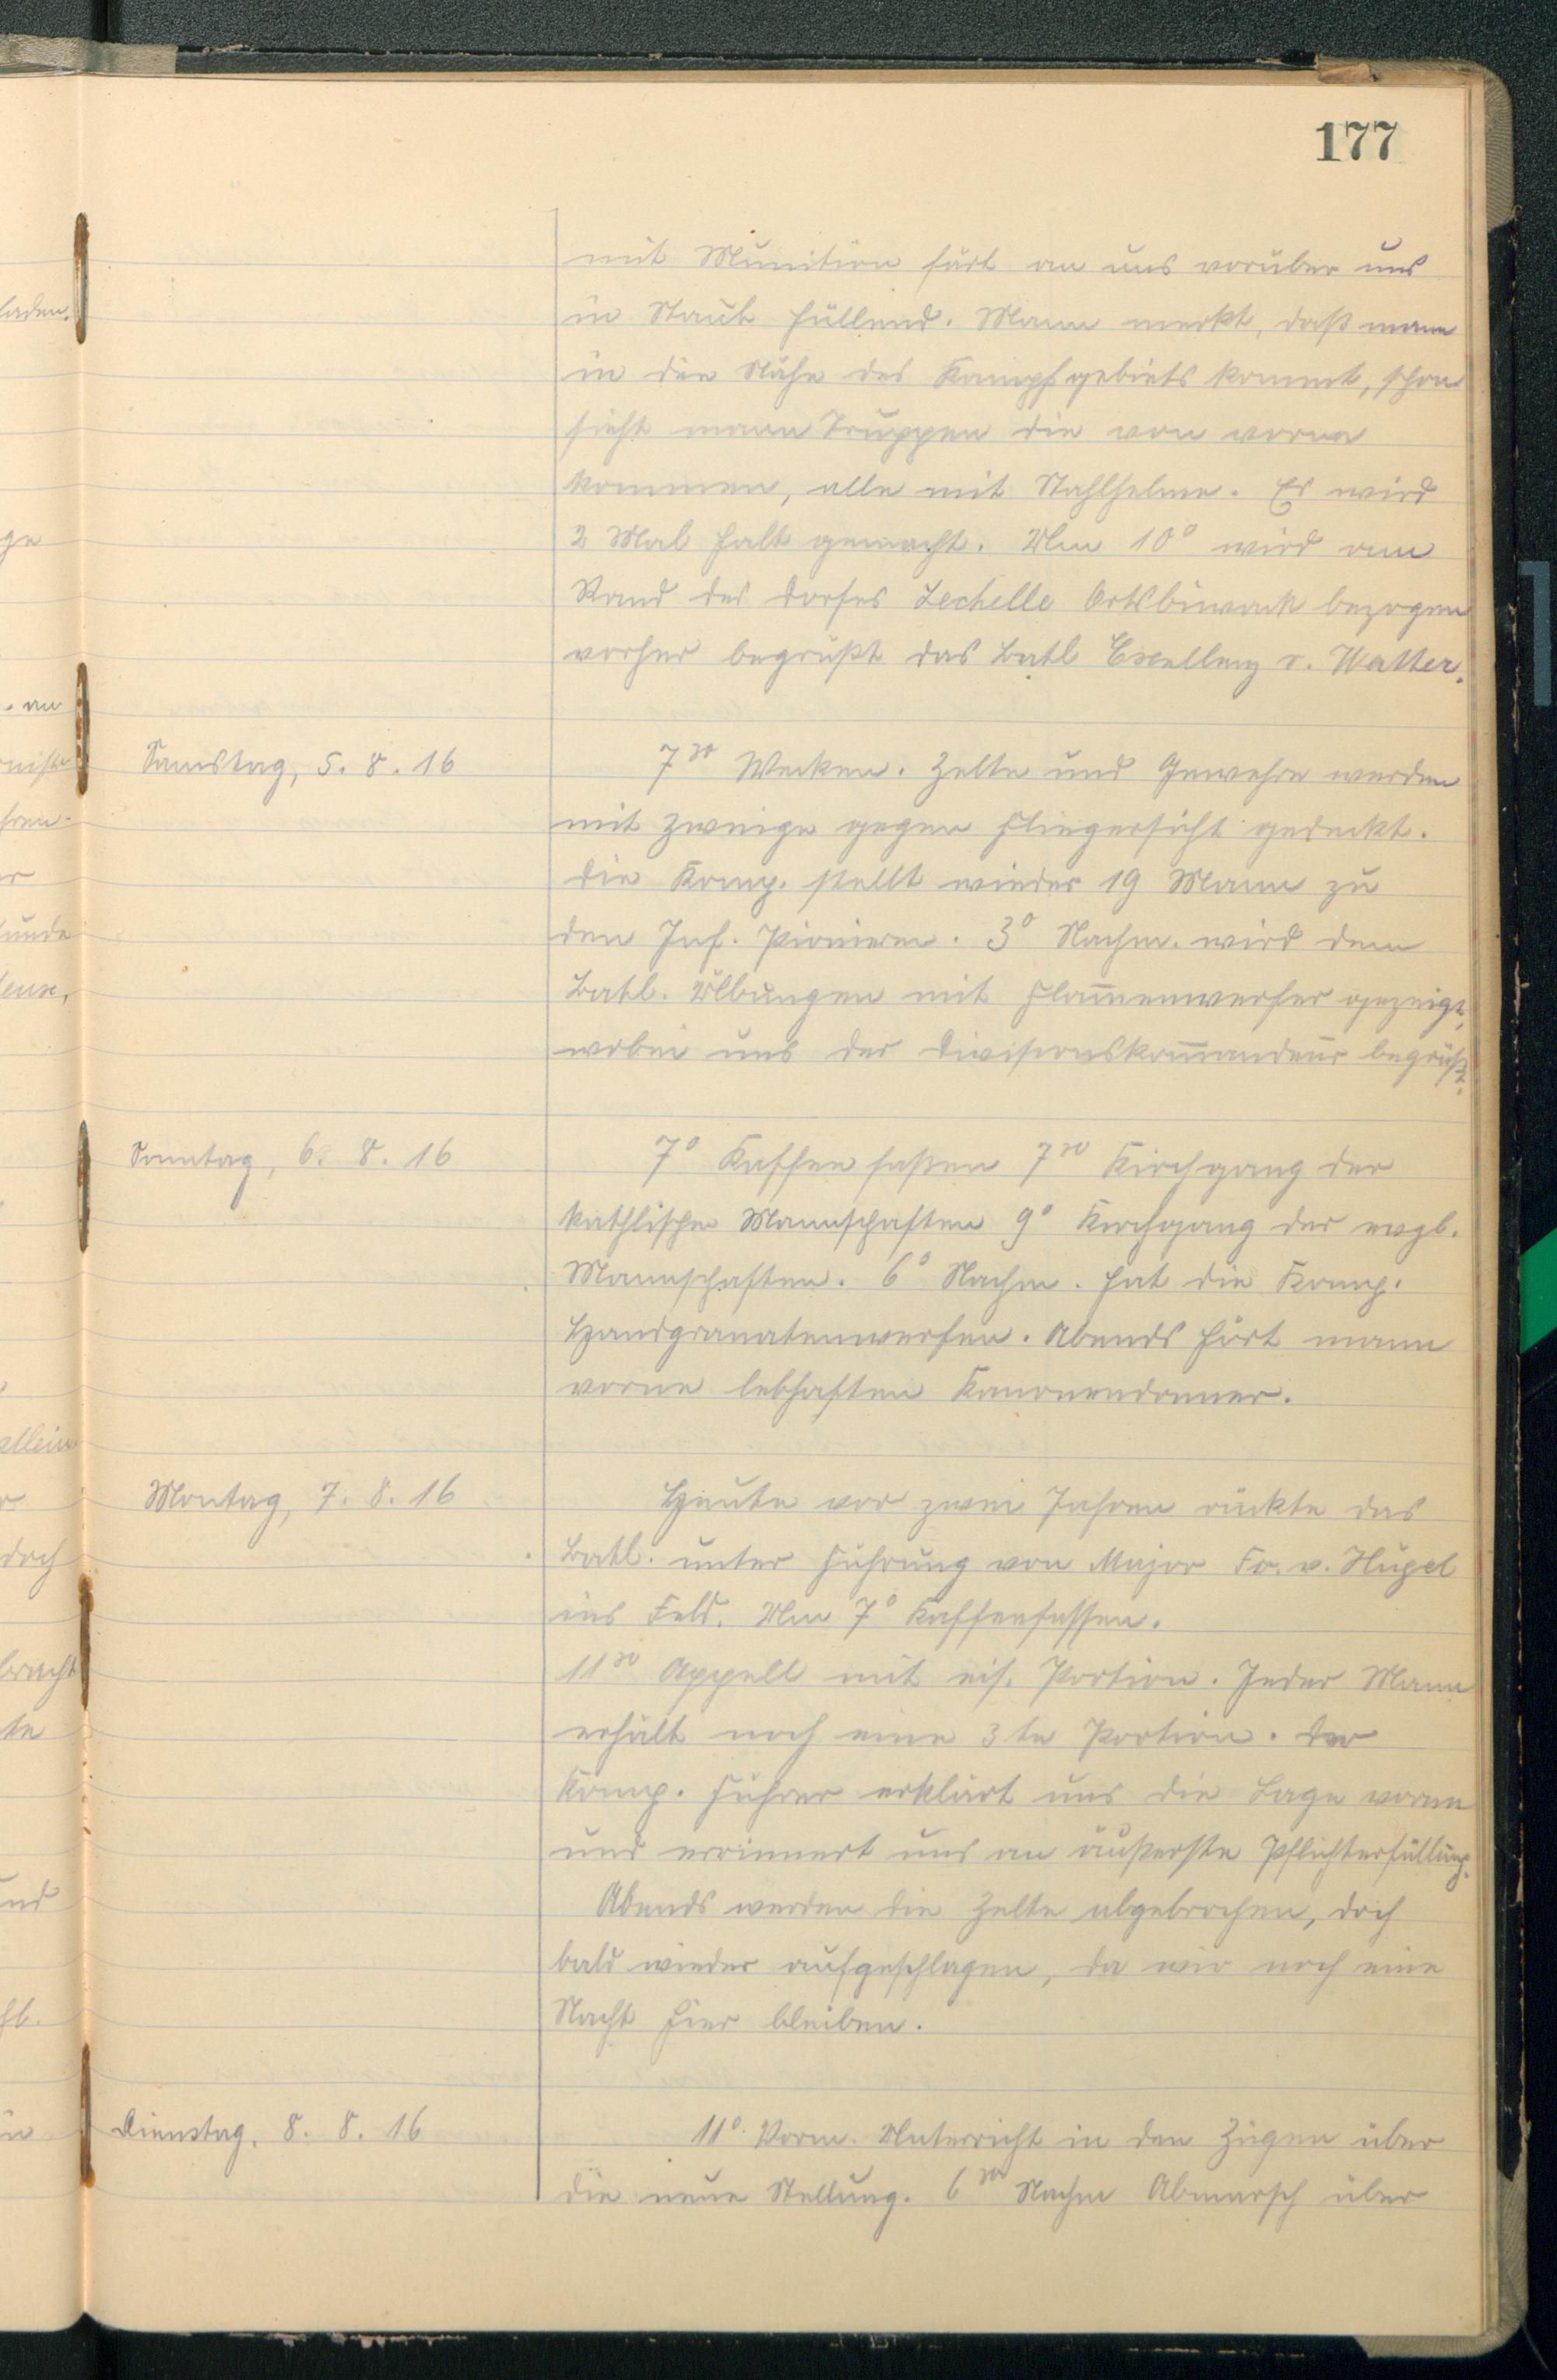 177
mit Munition färt an uns vorüber uns
in Staub hüllend. Mann merkt, daß mann
in die Nähe des Kampfgebiets kommt, schon
sieht mann Truppen die von vorne
kommen, alle mit Stahlhelme. Es wird
2 Mal halt gemacht. Um 10⁰ wird am
Rand des Dorfes Lechelle Ortsbiwack bezogen
vorher begrüßt das Batl Excellenz v. Watter.
Samstag, 5. 8. 16
7³⁰ Wecken. Zelte und Gewehre werden
mit Zweige gegen Fliegersicht gedeckt.
Die Komp. stellt wieder 19 Mann zu
den Inf. Pionieren. 3⁰ Nachm. wird dem
Batl. Übungen mit Flam̅enwerfer gezeigt,
wobei uns der Divisionskom̅andeur begrüßt.
Sonntag, 6. 8. 16
7⁰ Kaffee faßen 7³⁰ Kirchgang der
kathlischen Mannschaften 9⁰ Kirchgang der evgl.
Mannschaften. 6⁰ Nachm. hat die Komp.
Handgranatenwerfen. Abends hört mann
vorne lebhaften Kanonendonner.
Montag, 7. 8. 16
Heute vor zwei Jahren rückte das
Batl. unter Führung von Major Fr. v. Hügel
ins Feld. Um 7⁰ Kaffeefassen.
11³⁰ Appell mit eis. Portion. Jeder Mann
erhält noch eine 3te Portion. Der
Komp. Führer erklärt uns die Lage vorne
und errinnert uns an äußerste Pflichterfüllung.
Abends werden die Zelte abgebrochen, doch
bald wieder aufgeschlagen, da wir noch eine
Nacht hier bleiben.
Dienstag, 8. 8. 16
11⁰ Vorm. Unterricht in den Zügen über
die neue Stellung. 6³⁰ Nachm Abmarsch über